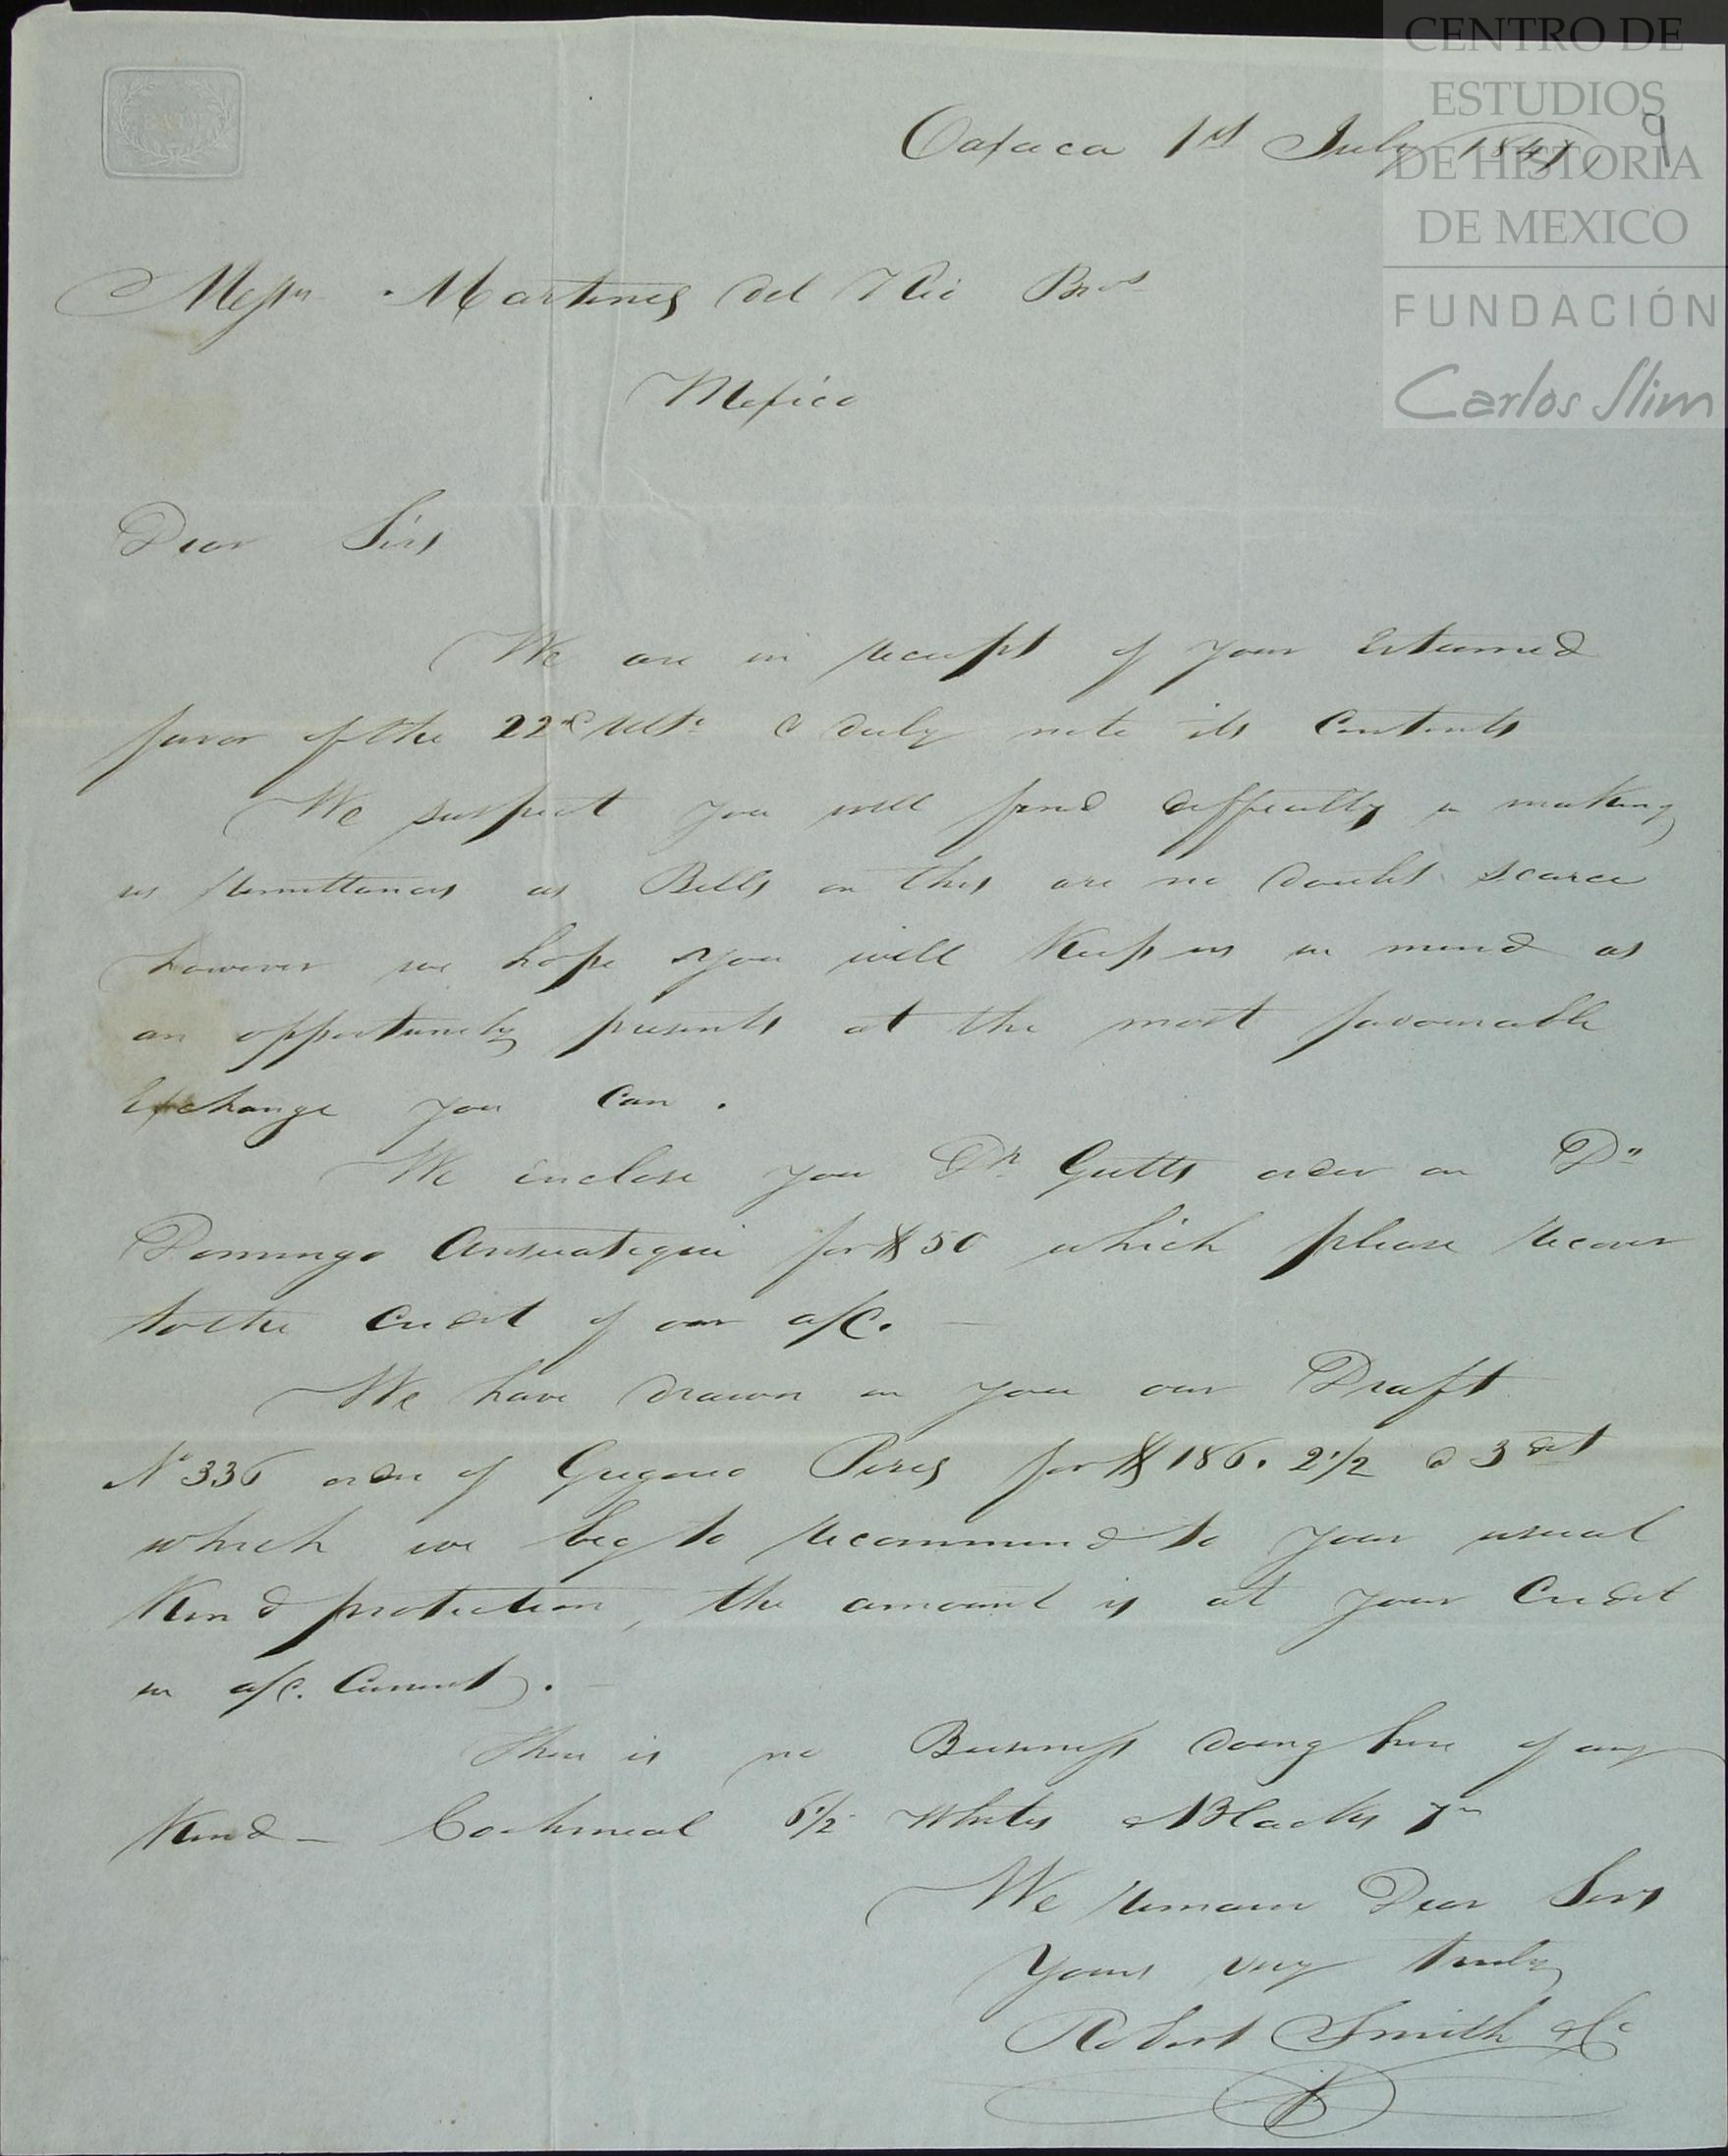 CENTRO DE
ESTUDIOS
DE HISTORIA
DE MEXICO
FUNDACIÓN
Carlos Slim
9
BATH
Oaxaca 1st July 1841
Messrs Martines del Rio Bros
Mexico
Dear Sirs
We are in receipt of your esteemed
favor of the 22d Ulto & duly note its Contents
We suspect you will find difficulty in making
us remittances as Bills on this are no doubt scarce
however we hope you will Keep us in mind as
an opportunity presents at the most favourable
Exchange you Can.
We enclose you Dr Gutts order on Dn
Domingo Ansuategui for $50 which please recover
to the Credit of our a/C.
We have drawn on you our Draft
No 336 order of Gregorio Peres for $186. 2 1/2 @ 3 d/st
which we beg to recommend to your usual
Kind protection, the amount is at your Credit
in a/c. Current.
There is no Business doing here of any
Kind - Cochineal 6 1/2 Whites & Blacks 7
We remain Dear Sirs
Yours very truly
Robert Smith & Co